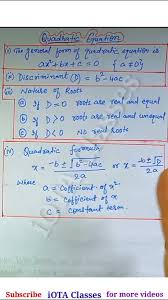 Quadratic Equation
(i) The general form of quadratic equation is
ax²+bx+c=0 {a≠0}
(ii) Discriminant (D) = b²-4ac
(iii) Nature of Roots
(a) If D>0 roots are real and unequal
(b) If D=0 roots are real and equal
(c) If D<0 No real roots
(iv) Quadratic formula
x = -b±√b²-4ac / 2a or x = -b±√D / 2a
Where
a = Coefficient of x².
b = Coefficient of x
c = Constant term.
Subscribe iOTA Classes for more videos